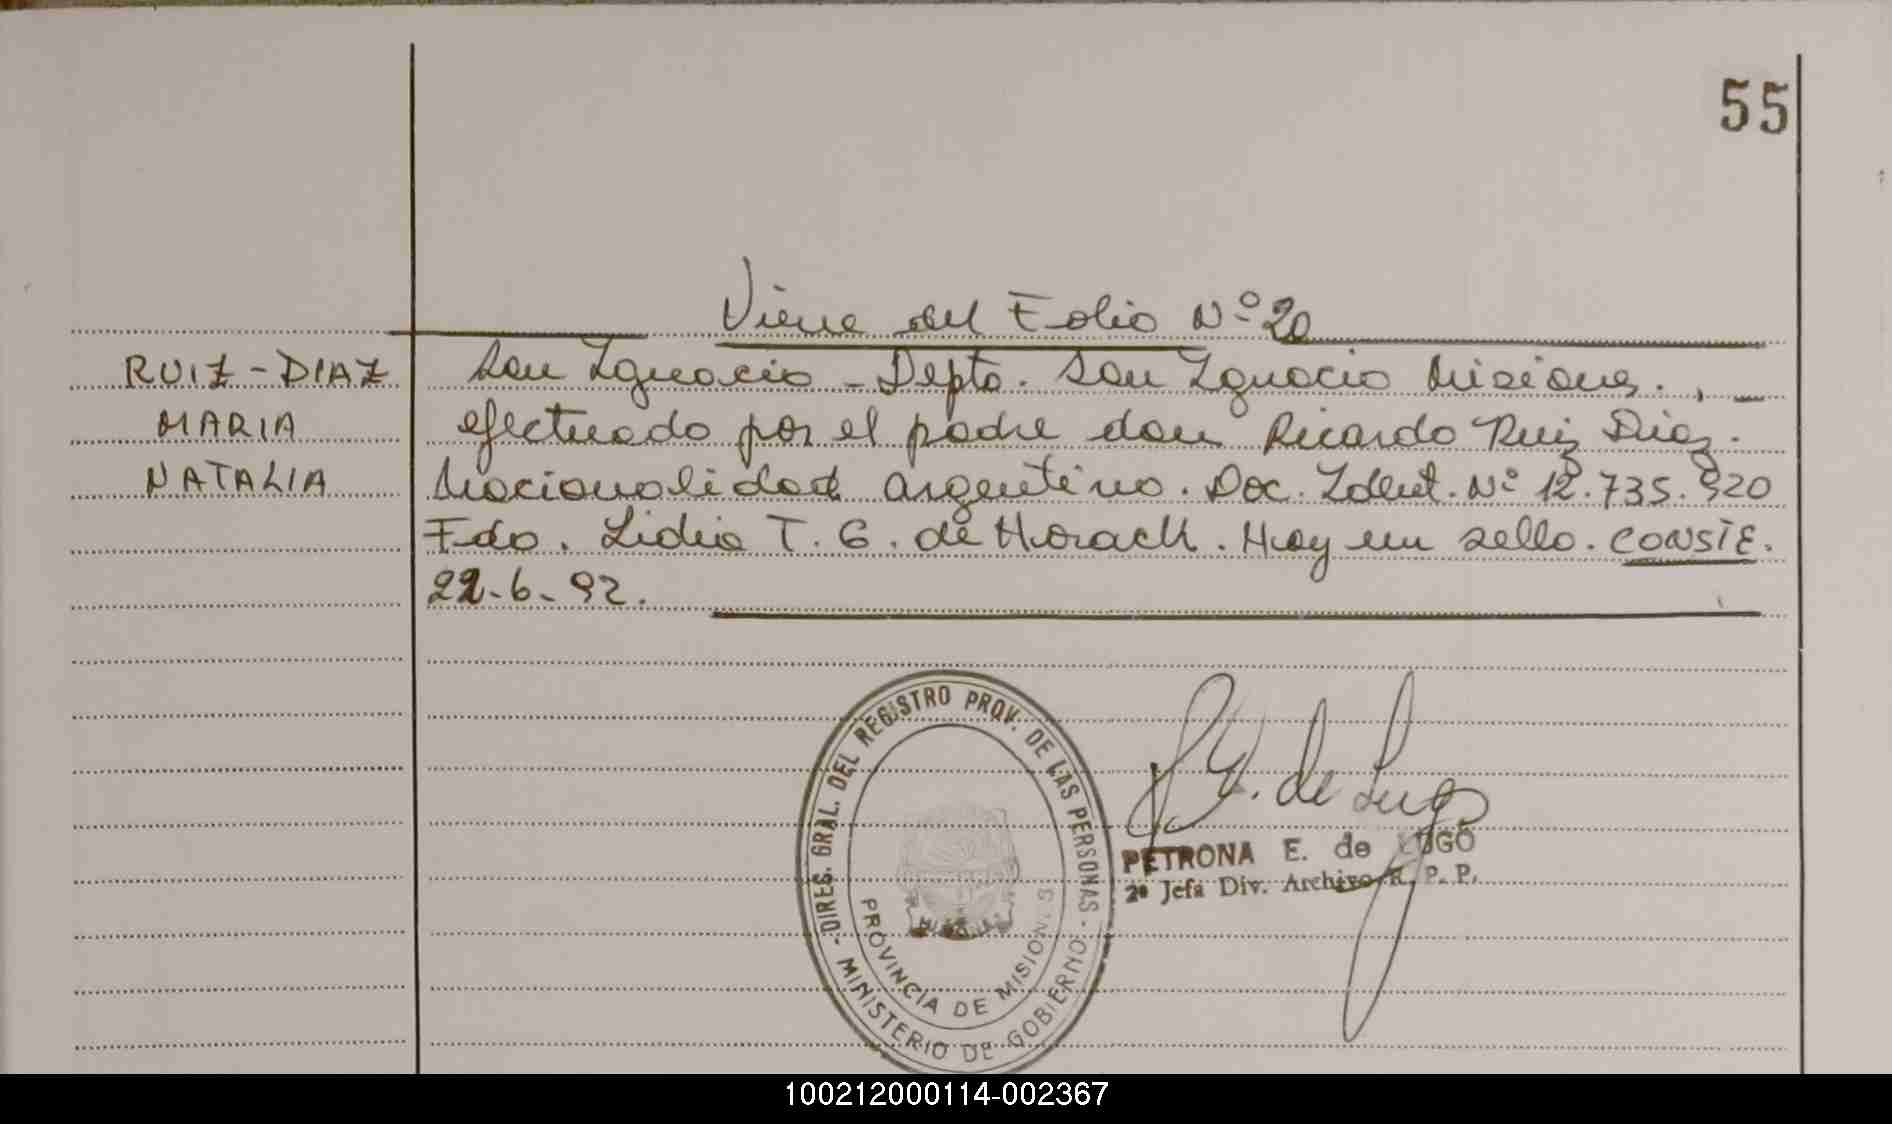 55
Viene del Folio Nº 20
RUIZ-DIAZ
MARIA
NATALIA
San Ignacio - Depto. San Ignacio Misiones.,
efectuado por el padre don Ricardo Ruiz Diaz.
Nacionalidad argentino. Doc. Ident. Nº 12.735.920
Fdo. Lidia T. G. de Horach. Hay un sello. CONSTE.
22-6-92.
- DIRES. GRAL. DEL REGISTRO PROV. DE LAS PERSONAS -
MINISTERIO DE GOBIERNO
PROVINCIA DE MISIONES
P. E. de Lugo
PETRONA E. de LUGO
2ª Jefa Div. Archivo R. P. P.
100212000114-002367